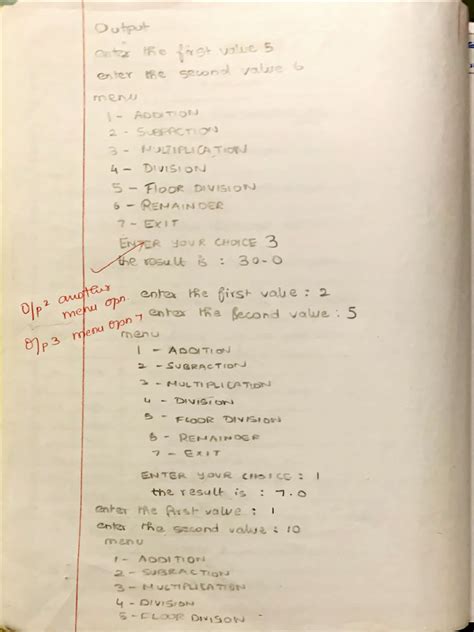 Output
enter the first value 5
enter the second value 6
menu
1 - ADDITION
2 - SUBRACTION
3 - MULTIPLICATION
4 - DIVISION
5 - FLOOR DIVISION
6 - REMAINDER
7 - EXIT
ENTER YOUR CHOICE 3
the result is : 30.0
O/p 2 another
menu opn.
O/p 3 menu opn 7
enter the first value : 2
enter the second value : 5
menu
1 - ADDITION
2 - SUBRACTION
3 - MULTIPLICATION
4 - DIVISION
5 - FLOOR DIVISION
6 - REMAINDER
7 - EXIT
ENTER YOUR CHOICE : 1
the result is : 7.0
enter the first value : 1
enter the second value : 10
menu
1 - ADDITION
2 - SUBRACTION
3 - MULTIPLICATION
4 - DIVISION
5 - FLOOR DIVISON